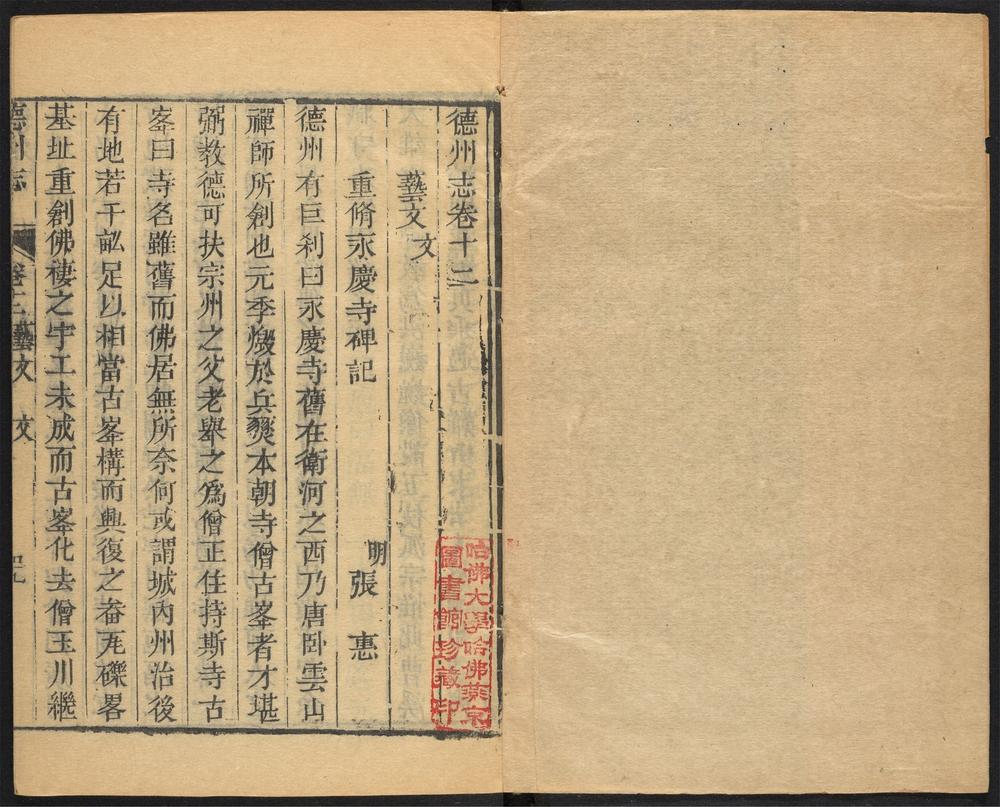 德州志卷十二
藝文 文
重脩永慶寺碑記
明 張 惠
德州有巨刹曰永慶寺舊在衛河之西乃唐卧雲山
禪師所創也元季燬於兵燹本朝寺僧古峯者才堪
弼教德可扶宗州之父老舉之爲僧正住持斯寺古
峯曰寺名雖舊而佛居無所奈何或謂城內州治後
有地若干畝足以相當古峯構而興復之畚瓦礫畧
基址重創佛棲之宇工未成而古峯化去僧玉川繼
德州志 卷十二藝文 文
哈佛大學哈佛燕京
圖書館珍藏印